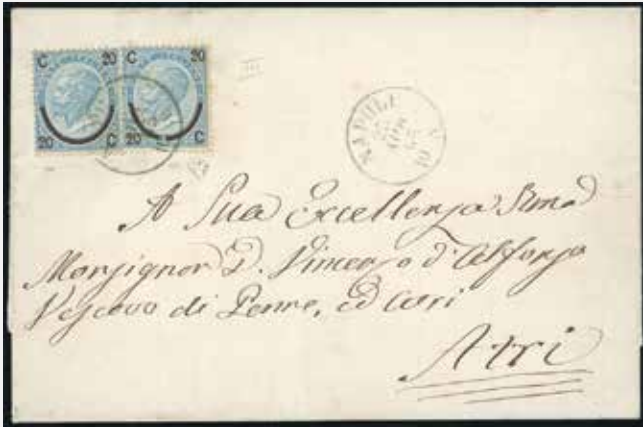 C 20 C 20
20 C 20 C
III
NAPOLI
A Sua Eccellenza
Monsignor D. Vincenzo d'Alfonso
Vescovo di Penne, ed Atri
Atri